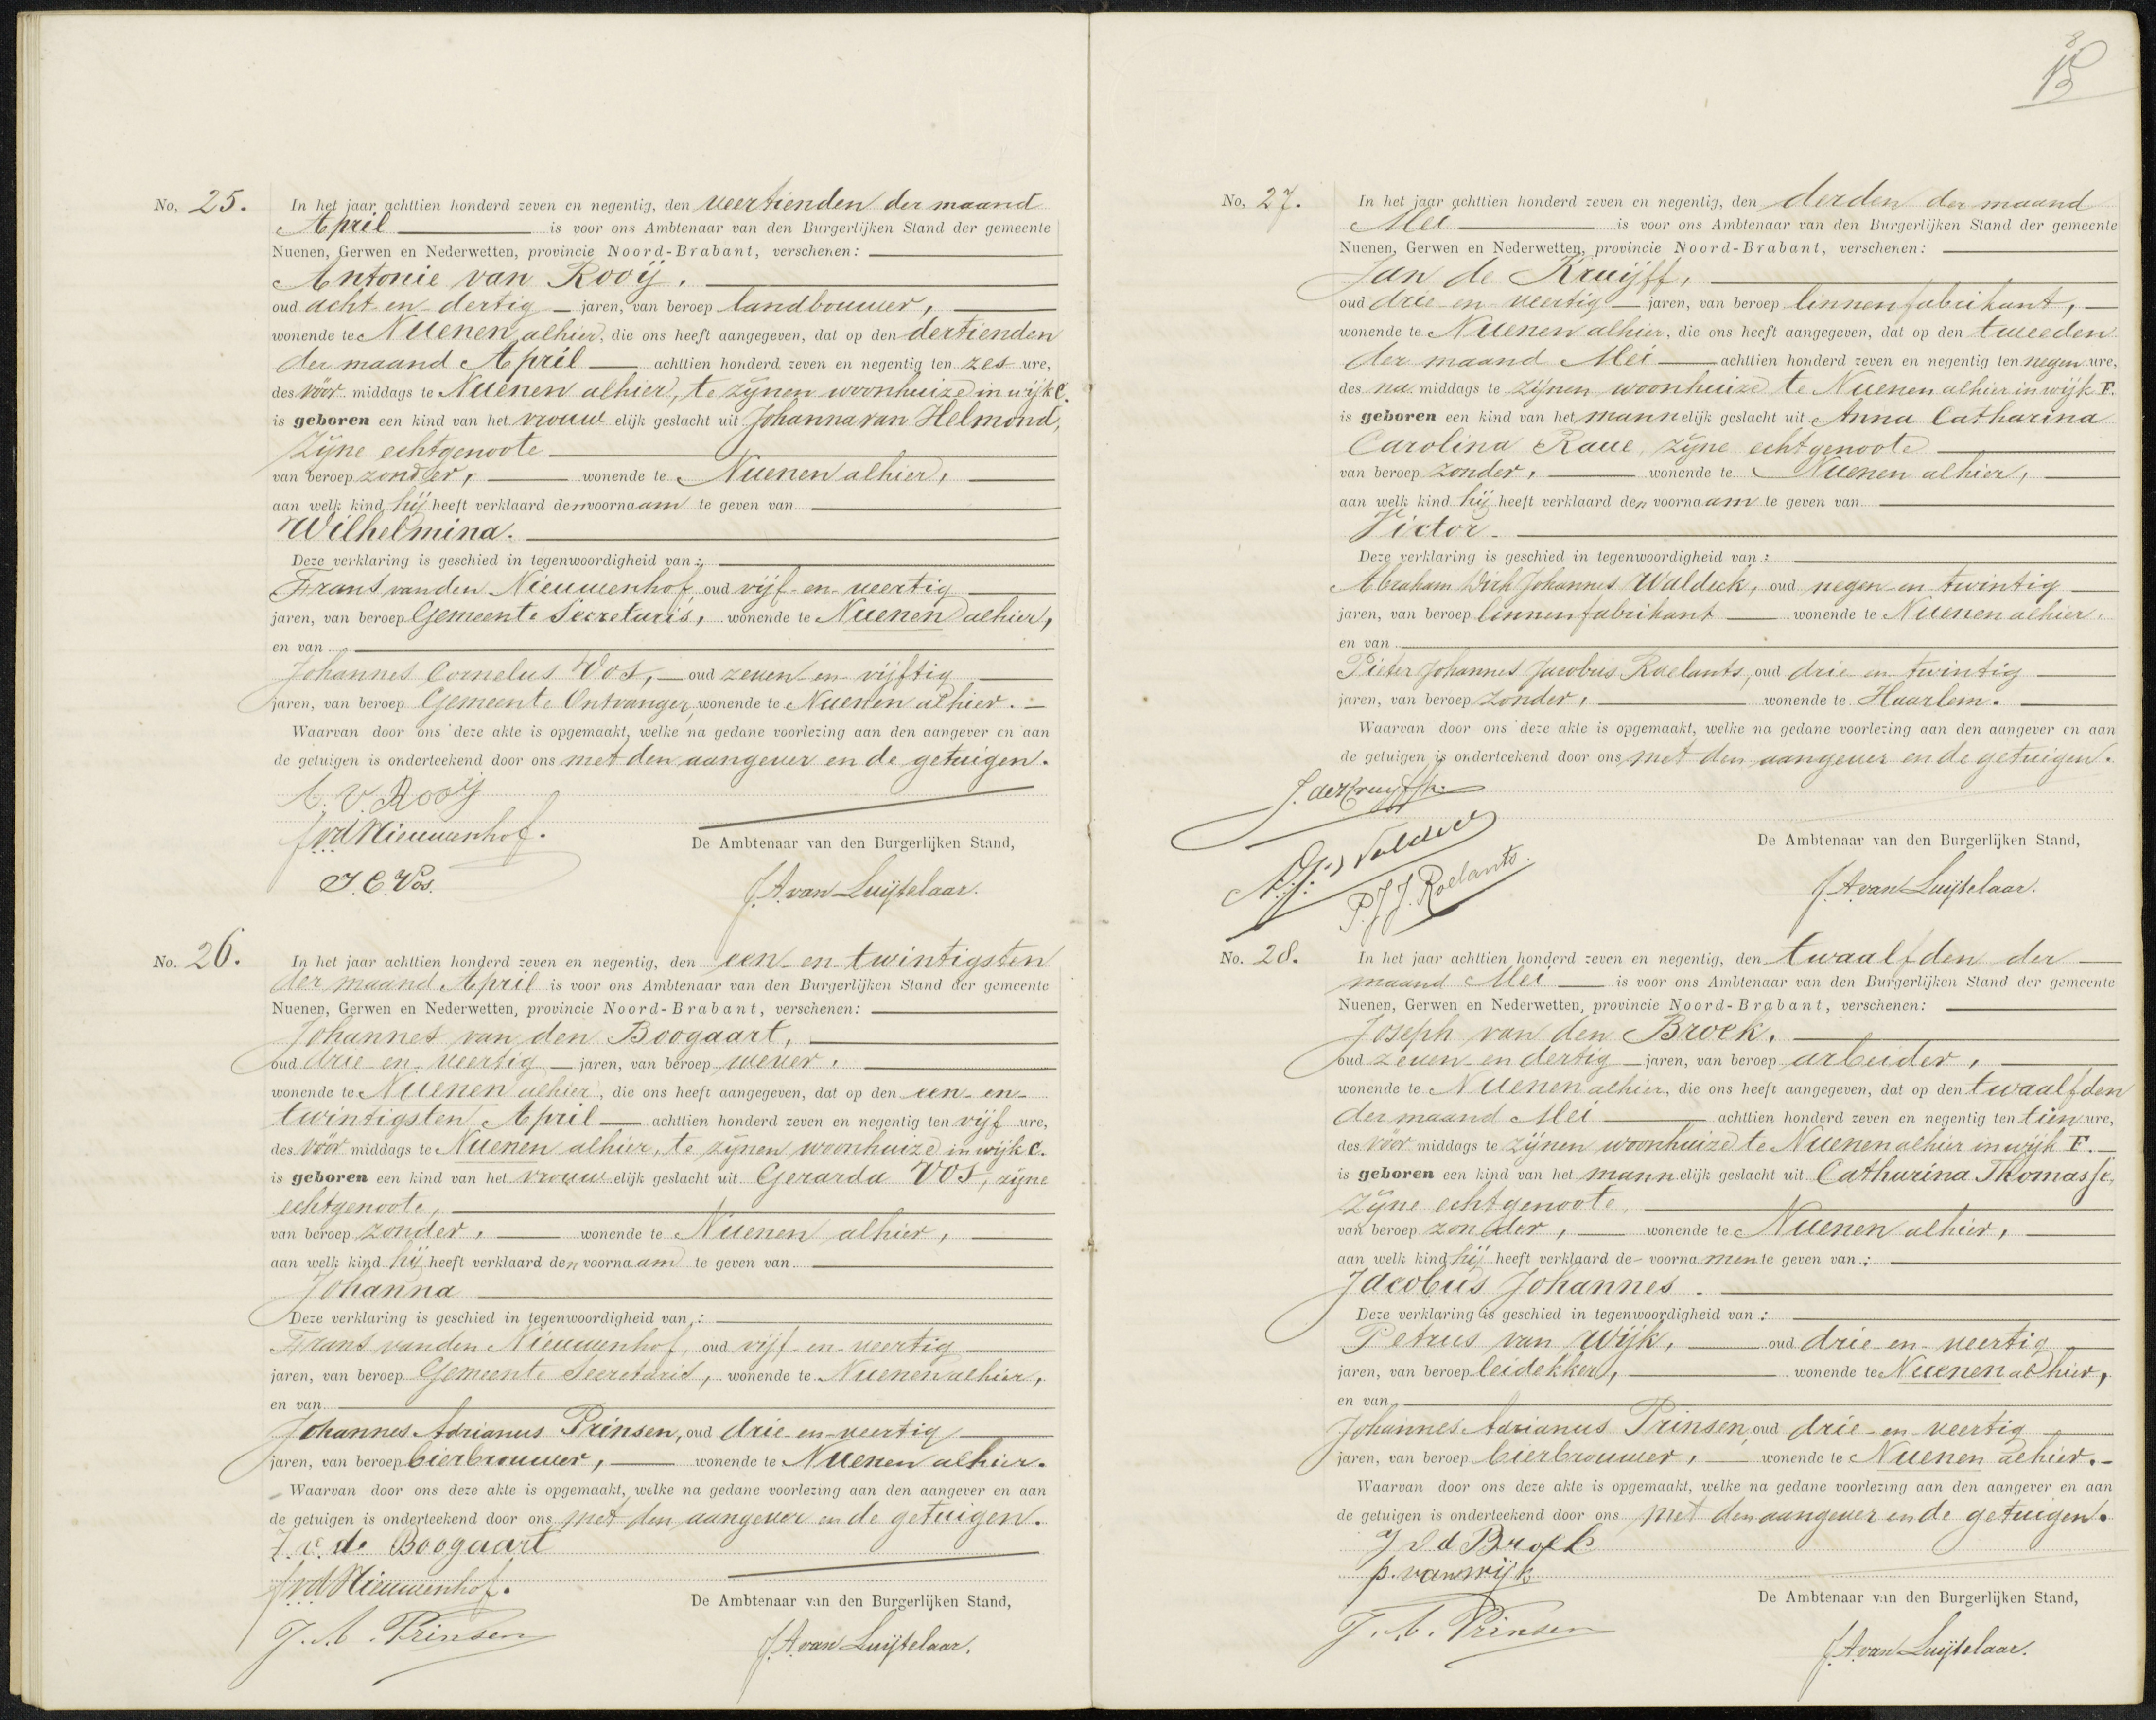 No. 25. In het jaar achttien honderd zeven en negentig, den veertienden der maand
April is voor ons Ambtenaar van den Burgerlijken Stand der gemeente
Nuenen, Gerwen en Nederwetten, provincie Noord-Brabant, verschenen:
Antonie van Rooij,
oud acht en dertig jaren, van beroep landbouwer,
wonende te Nuenen alhier, die ons heeft aangegeven, dat op den dertienden
der maand April achttien honderd zeven en negentig ten zes ure,
des vóór middags te Nuenen alhier, te zijnen woonhuize in wijk C.
is geboren een kind van het vrouwelijk geslacht uit Johanna van Helmond,
zijne echtgenoote
van beroep zonder, wonende te Nuenen alhier,
aan welk kind hij heeft verklaard den voornaam te geven van
Wilhelmina.
Deze verklaring is geschied in tegenwoordigheid van:
Frans van den Nieuwenhof, oud vijf-en-veertig
jaren, van beroep Gemeente Secretaris, wonende te Nuenen alhier,
en van
Johannes Cornelus Vos, oud zeven-en-vijftig
jaren, van beroep Gemeente Ontvanger, wonende te Nuenen alhier.
Waarvan door ons deze akte is opgemaakt, welke na gedane voorlezing aan den aangever en aan
de getuigen is onderteekend door ons met den aangever en de getuigen.
A. v. Rooij
F. vd Nieuwenhof.
De Ambtenaar van den Burgerlijken Stand,
J. C. Vos.
J. A. van Luijtelaar.
No. 26. In het jaar achttien honderd zeven en negentig, den een-en-twintigsten
der maand April is voor ons Ambtenaar van den Burgerlijken Stand der gemeente
Nuenen, Gerwen en Nederwetten, provincie Noord-Brabant, verschenen:
Johannes van den Boogaart,
oud drie en veertig jaren, van beroep wever,
wonende te Nuenen alhier, die ons heeft aangegeven, dat op den een-en-
twintigsten April achttien honderd zeven en negentig ten vijf ure,
des vóór middags te Nuenen alhier, te zijnen woonhuize in wijk C.
is geboren een kind van het vrouwelijk geslacht uit Gerarda Vos, zijne
echtgenoote,
van beroep zonder, wonende te Nuenen alhier,
aan welk kind hij heeft verklaard den voornaam te geven van
Johanna
Deze verklaring is geschied in tegenwoordigheid van:
Frans van den Nieuwenhof, oud vijf-en-veertig
jaren, van beroep Gemeente Secretaris, wonende te Nuenen alhier,
en van
Johannes Adrianus Prinsen, oud drie-en-veertig
jaren, van beroep bierbrouwer, wonende te Nuenen alhier.
Waarvan door ons deze akte is opgemaakt, welke na gedane voorlezing aan den aangever en aan
de getuigen is onderteekend door ons met den aangever en de getuigen.
J. v. de Boogaart
F. vd Nieuwenhof.
De Ambtenaar van den Burgerlijken Stand,
J. A. Prinsen
J. A. van Luijtelaar.
8
No. 27. In het jaar achttien honderd zeven en negentig, den derden der maand
Mei is voor ons Ambtenaar van den Burgerlijken Stand der gemeente
Nuenen, Gerwen en Nederwetten, provincie Noord-Brabant, verschenen:
Jan de Kruijff,
oud drie en veertig jaren, van beroep linnenfabrikant,
wonende te Nuenen alhier, die ons heeft aangegeven, dat op den tweeden
der maand Mei achttien honderd zeven en negentig ten negen ure,
des na middags te zijnen woonhuize te Nuenen alhier in wijk F.
is geboren een kind van het mannelijk geslacht uit Anna Catharina
Carolina Raue, zijne echtgenoote
van beroep zonder, wonende te Nuenen alhier,
aan welk kind hij heeft verklaard den voornaam te geven van
Victor.
Deze verklaring is geschied in tegenwoordigheid van:
Abraham Dirk Johannes Waldeck, oud negen en twintig
jaren, van beroep linnenfabrikant wonende te Nuenen alhier.
en van
Pieter Johannes Jacobus Roelants, oud drie en twintig
jaren, van beroep zonder, wonende te Haarlem.
Waarvan door ons deze akte is opgemaakt, welke na gedane voorlezing aan den aangever en aan
de getuigen is onderteekend door ons met den aangever en de getuigen.
J. de Kruyff
De Ambtenaar van den Burgerlijken Stand,
Waldeck
P. J. J. Roelants.
J. A. van Luijtelaar.
No. 28. In het jaar achttien honderd zeven en negentig, den twaalfden der
maand Mei is voor ons Ambtenaar van den Burgerlijken Stand der gemeente
Nuenen, Gerwen en Nederwetten, provincie Noord-Brabant, verschenen:
Joseph van den Broek,
oud zeven en dertig jaren, van beroep arbeider,
wonende te Nuenen alhier, die ons heeft aangegeven, dat op den twaalfden
der maand Mei achttien honderd zeven en negentig ten tien ure,
des vóór middags te zijnen woonhuize te Nuenen alhier in wijk F.
is geboren een kind van het mannelijk geslacht uit Catharina Thomasse,
zijne echtgenoote,
van beroep zonder, wonende te Nuenen alhier,
aan welk kind hij heeft verklaard de voornamen te geven van:
Jacobus Johannes.
Deze verklaring is geschied in tegenwoordigheid van:
Petrus van Wijk, oud drie en veertig
jaren, van beroep leidekker, wonende te Nuenen alhier,
en van
Johannes Adrianus Prinsen, oud drie-en-veertig
jaren, van beroep bierbrouwer, wonende te Nuenen alhier.
Waarvan door ons deze akte is opgemaakt, welke na gedane voorlezing aan den aangever en aan
de getuigen is onderteekend door ons met den aangever en de getuigen.
J v d Broek
p. van wijk
De Ambtenaar van den Burgerlijken Stand,
J. A. Prinsen
J. A. van Luijtelaar.